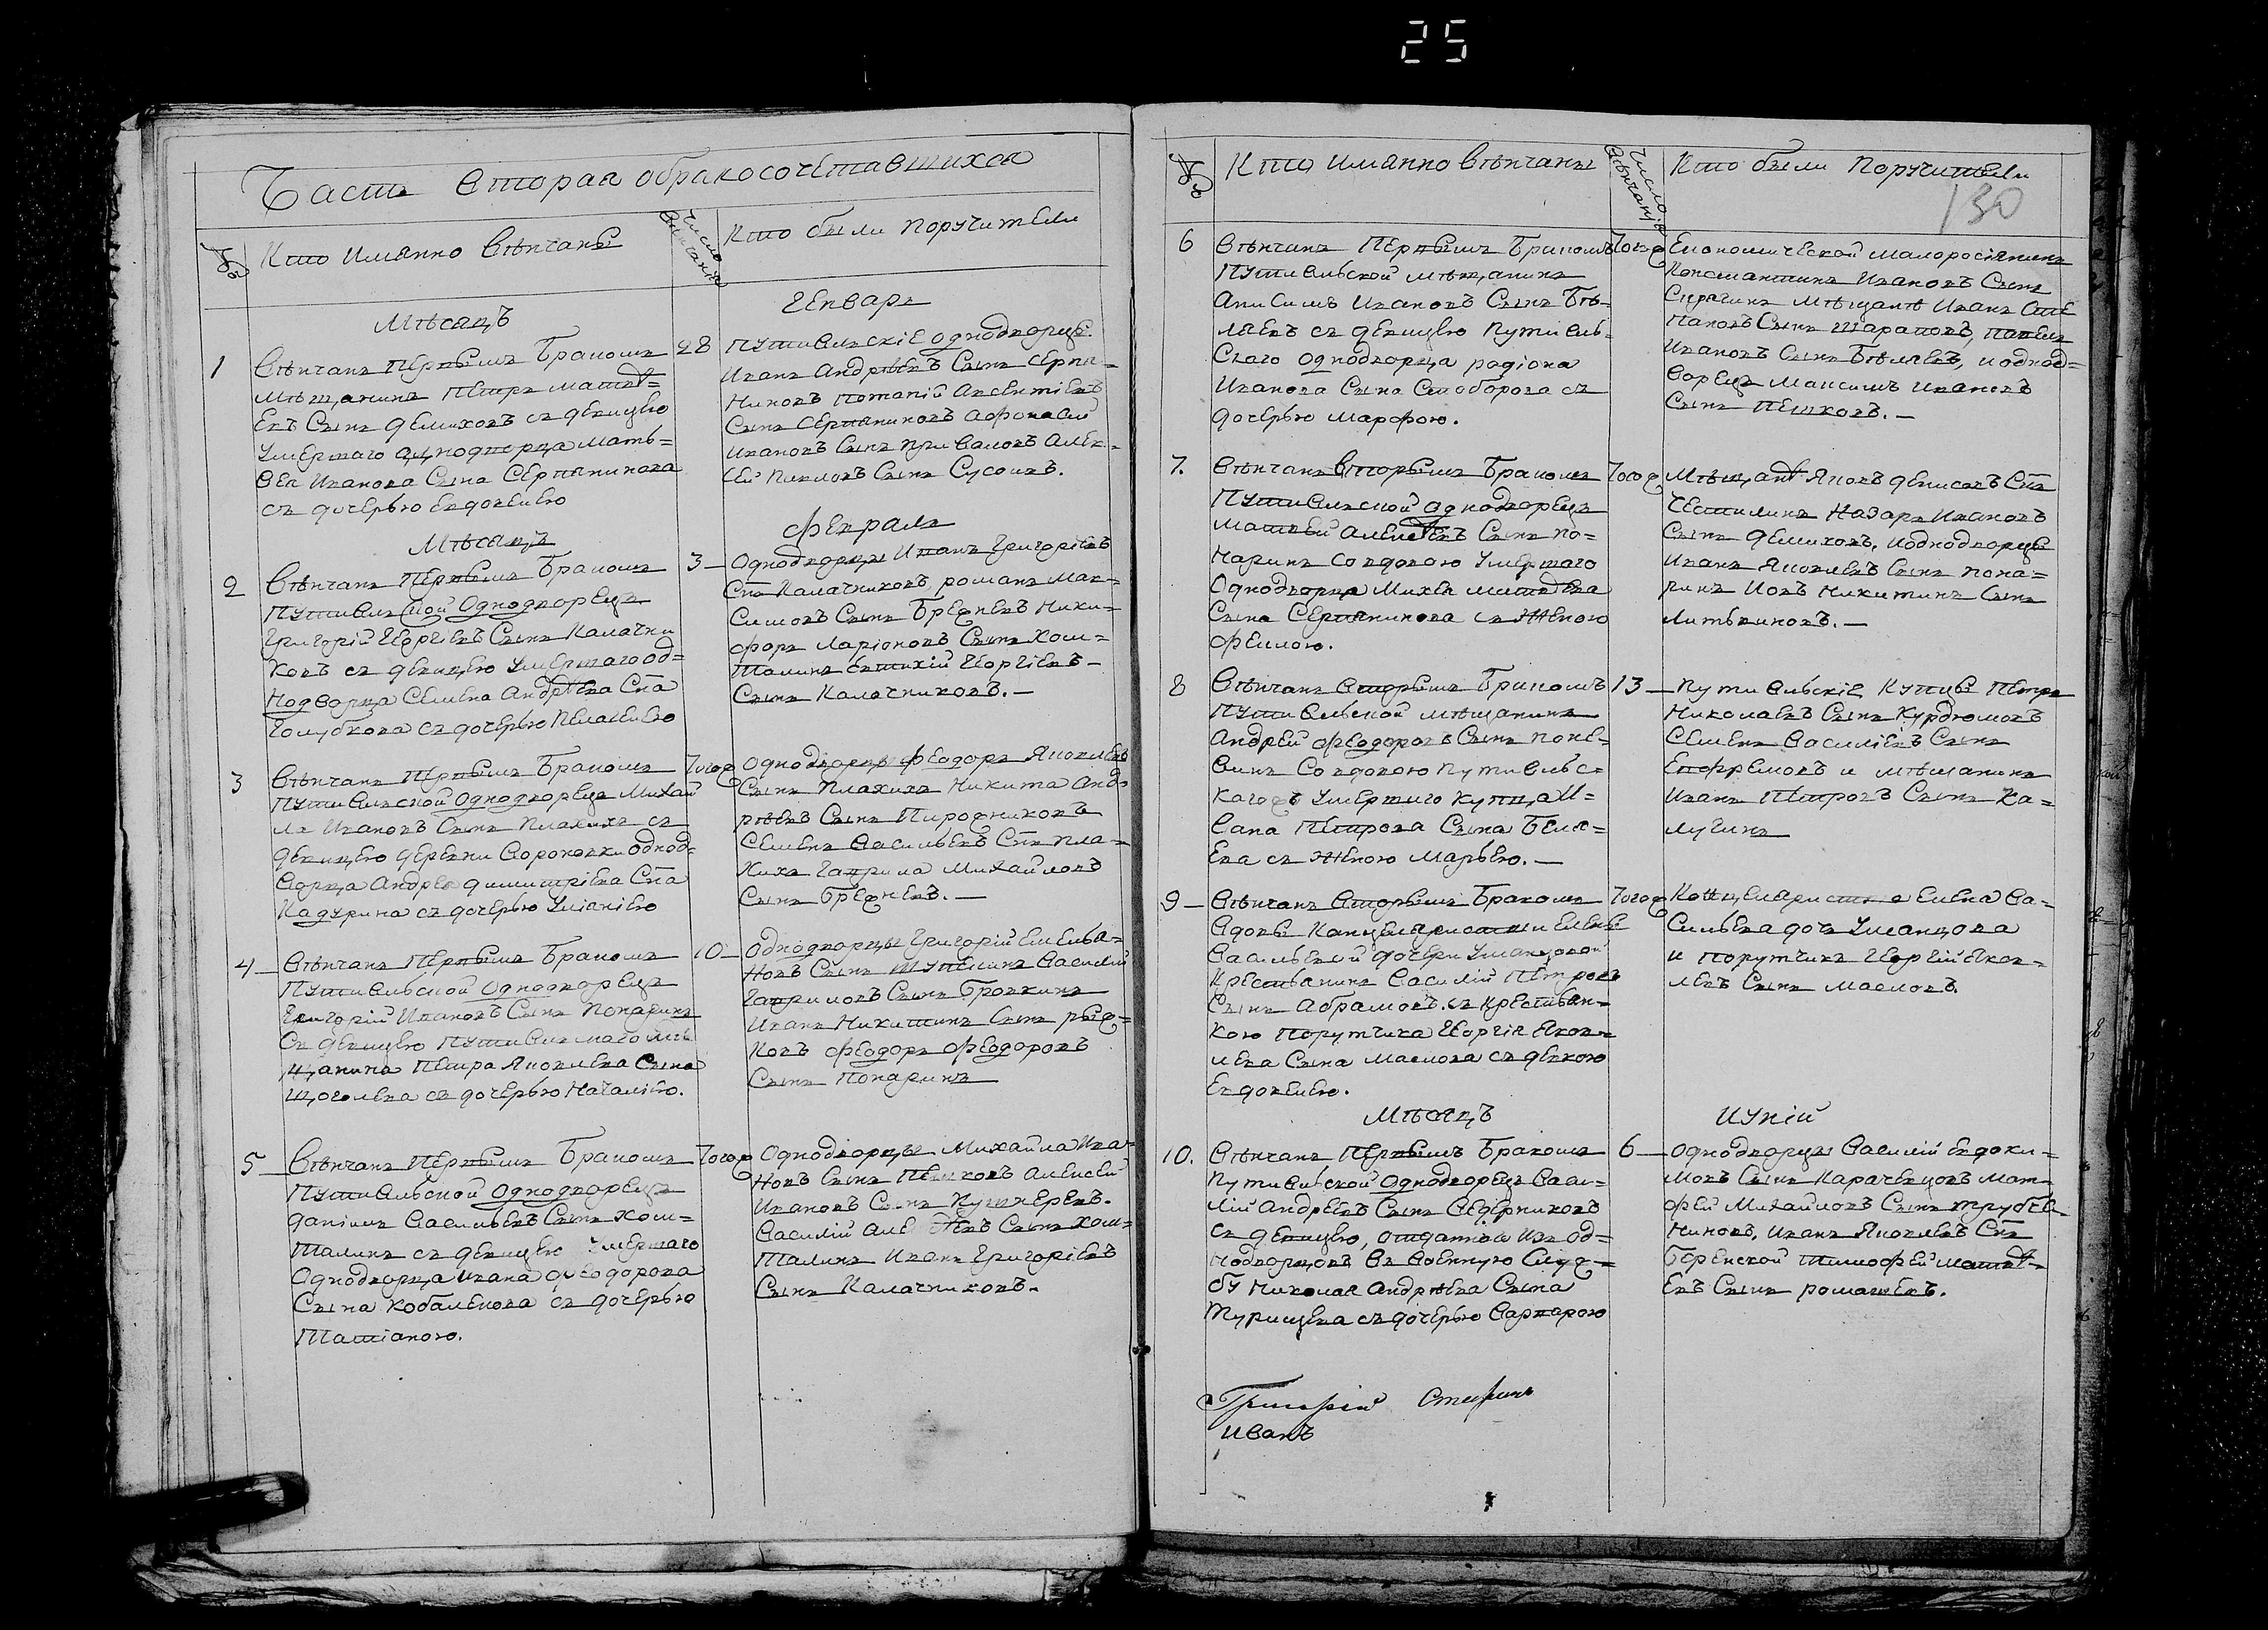 25
Часть вторая обракосочетавшихся
№
Кто имянно вѣнчаны
Число вѣнчанія
Кто были поручители
Мѣсяцъ
Генварь
1
Вѣнчанъ первымъ бракомъ
мѣщанинъ Петръ Матвѣ=
евъ сынъ Демиховъ съ девицею
умершаго однодворца Матъ=
вея Иванова сына Серпянинова
съ дочерью Евдокиею
28
Путивльскіе однодворцы
Иванъ Андрѣевъ сынъ Серпя=
ниновъ Потапій Авсентіевъ
сынъ Серпяниновъ Афонасий
Ивановъ сынъ Приваловъ Алек=
сей Павловъ сынъ Сусоивъ.
Мѣсяцъ
Февраль
2
Вѣнчанъ первымъ бракомъ
Путивльской однодворецъ
Григорій Георгіевъ сынъ Калачни
ковъ съ девицею умершаго од=
нодворца Семена Андрѣева сна
Голубкова съ дочерью Пелагеиею
3
Однодворцы Иванъ Григоріевъ
снъ Калачниковъ, романъ Мак=
симовъ сынъ Брежневъ Ники=
форъ Ларіоновъ сынъ Хом=
талинъ Евтихій Георгіевъ
сынъ Калачниковъ.
3
Вѣнчанъ первымъ бракомъ
Путивльской однодворецъ Михай
ла Ивановъ сынъ Плахихъ съ
девицею деревни Вороновки однод=
ворца Андрея Димитріева сна
Кадурина съ дочерью Уліаніею
Тогож
Однодворцы Феодоръ Яковлевъ
сынъ Плахихъ Никита Анд=
рѣевъ сынъ Пирожниковъ
Семенъ Васильевъ снъ Пла=
хихъ Гаврила Михайловъ
сынъ Брежневъ.
4
Вѣнчанъ первымъ бракомъ
Путивльской однодворецъ
Григорій Ивановъ сынъ Понаринъ
съ девицею Путивльскаго мѣ
щанина Петра Яковлева сына
Щоголева съ дочерью Наталіею.
10
Однодворцы Григорій Емелья=
новъ сынъ Шупенинъ Василій
Гавриловъ сынъ Бровкинъ
Иванъ Никитинъ сынъ рыж=
ковъ Феодоръ Феодоровъ
сынъ Понаринъ
5
Вѣнчанъ первымъ бракомъ
Путивльской однодворецъ
Даніилъ Васильевъ сынъ Хом=
талинъ съ девицею умершаго
однодворца Ивана Феодорова
сына Кобалекова съ дочерью
Татіаною.
Тогож
Однодворцы Михайла Ива=
новъ сынъ Пешковъ Алексей
Ивановъ сынъ Кушнеревъ.
Василій сынъ Хом=
талинъ Иванъ Григоріевъ
сынъ Калачниковъ.
№
Кто имянно вѣнчаны
Число вѣнчанія
Кто были поручители
130
6
Вѣнчанъ первымъ бракомъ
Путивльской мѣщанинъ
Анисимъ Ивановъ сынъ Бѣ=
ляевъ съ девицею Путивль=
скаго однодворца радіона
Иванова сына Слоборова съ
дочерью Марфою.
Тогож
Економической малоросіянинъ
Константинъ Ивановъ сынъ
Сирягинъ мѣщане Иванъ Сте
пановъ сынъ Шараповъ, Павелъ
Ивановъ сынъ Бѣляевъ, и однод=
ворецъ Максимъ Ивановъ
сынъ Пешковъ.
7.
Вѣнчанъ вторымъ бракомъ
Путивльской однодворецъ
Матвей Алексѣевъ сынъ По=
наринъ со вдовою умершаго
однодворца Михея Матвѣева
сына Серпянинова съ женою
Феклою.
Тогож
Мѣщане Яковъ Денисовъ снъ
Чествилинъ Назаръ Ивановъ
сынъ Демиховъ, и однодворцы
Иванъ Яковлевъ сынъ Пона=
ринъ Иовъ Никитинъ сынъ
Литвиновъ.
8
Вѣнчанъ вторымъ бракомъ
Путивльской мѣщанинъ
Андрей Феодоровъ сынъ Поне=
винъ со вдовою Путивльс=
кагожъ умершаго купца И=
вана Петрова сына Беля=
ева съ женою Марьею.
13
Путивльскіе купцы Петръ
Николаевъ сынъ Курдюмовъ
Семенъ Василіевъ сынъ
Епофремовъ и мѣщанинъ
Иванъ Петровъ сынъ Ка=
лугинъ
9
Вѣнчанъ вторымъ бракомъ
вдовы канцеляристши Елены
Васильевой дочери Уманцовой
крестьянинъ Василій Петровъ
сынъ Абрамовъ. съ крестьян=
кою порутчика Георгія Яков=
лева сына Маслова съ девкою
Евдокиею.
Тогож
Канцеляристша Елена Ва=
сильева дочь Уманцова
и порутчикъ Георгій Яков=
левъ сынъ Масловъ.
Мѣсяцъ
Иуній
10.
Вѣнчанъ первымъ бракомъ
Путивльской однодворецъ Васи=
лій Андреевъ сынъ Седерниковъ
съ девицею, отданной изъ од=
нодворцовъ въ военную служ=
бу Николая Андрѣева сына
Турищева съ дочерью Варварою
6
Однодворцы Василій Евдоки=
мовъ сынъ Карачевцовъ Мат=
фей Михайловъ сынъ Трубче
ниновъ, Иванъ Яковлевъ снъ
Беренской Тимофей Матвѣ=
евъ сынъ ромашевъ.
Григорій
Иванъ